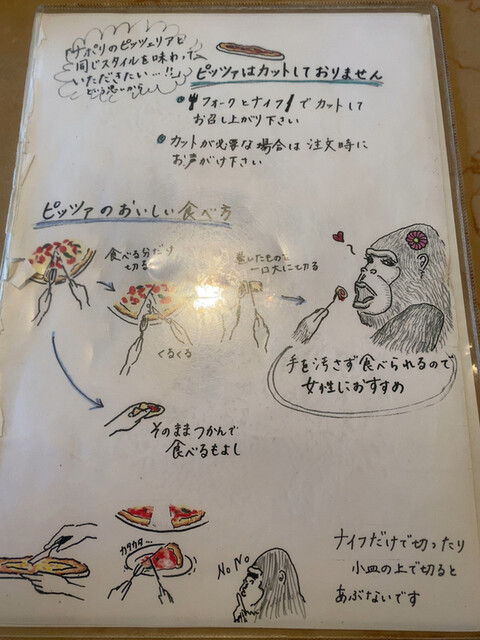 ナポリのピッツェリアと
同じスタイルを味わって
いただきたい…!!
という思いから
ピッツァはカットしておりません
フォークとナイフでカットして
お召し上がり下さい
カットが必要な場合は注文時に
お声がけ下さい
ピッツァのおいしい食べ方
食べる分だけ
切る
くるくる
巻いたもので
一口大に切る
手を汚さず食べられるので
女性におすすめ
そのままつかんで
食べるもよし
カタカタ…
No No
ナイフだけで切ったり
小皿の上で切ると
あぶないです